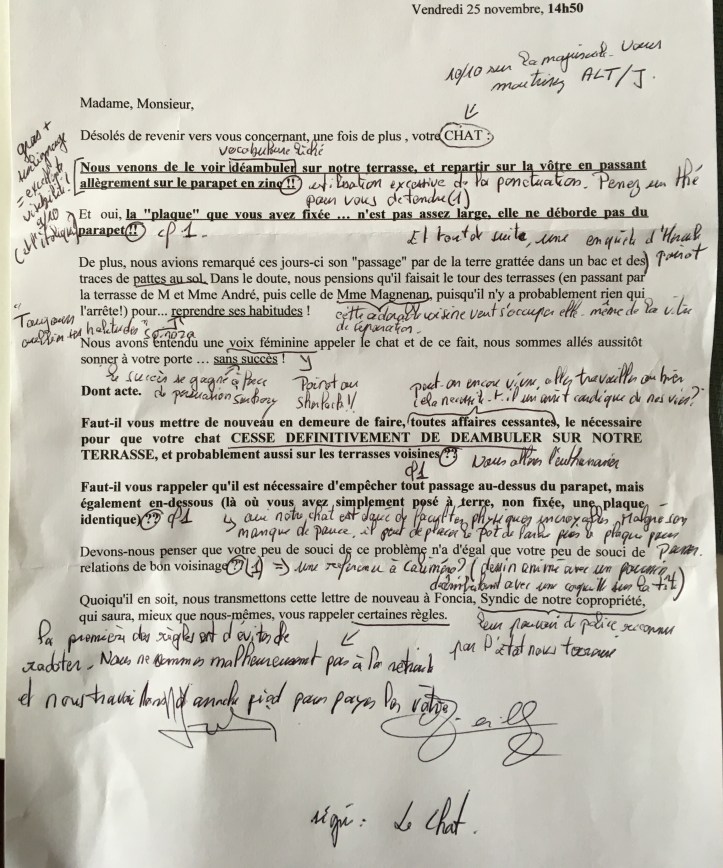 Vendredi 25 novembre, 14h50
10/10 sur la majuscule. Vous
maitrisez ALT/J.
Madame, Monsieur,
Désolés de revenir vers vous concernant, une fois de plus , votre CHAT :
gras +
soulignage
vocabulaire riche
Nous venons de le voir idéambuler sur notre terrasse, et repartir sur la vôtre en passant
allègrement sur le parapet en zinc !! utilisation excessive de la ponctuation. Prenez un thé
pour vous détendre (1)
Et oui, la "plaque" que vous avez fixée ... n'est pas assez large, elle ne déborde pas du
parapet!! cf 1.
Et tout de suite, une enquête d'Hercule
Poirot
De plus, nous avions remarqué ces jours-ci son "passage" par de la terre grattée dans un bac et des
traces de pattes au sol. Dans le doute, nous pensions qu'il faisait le tour des terrasses (en passant par
la terrasse de M et Mme André, puis celle de Mme Magnenan, puisqu'il n'y a probablement rien qui
l'arrête!) pour... reprendre ses habitudes !
cette adorable voisine veut s'occuper elle-même de la vitre
de séparation.
"Toujours
habitudes"
Nous avons entendu une voix féminine appeler le chat et de ce fait, nous sommes allés aussitôt
sonner à votre porte ... sans succès !
Le succès se gagne à force
de persuasion
Poirot ou
Sherlock !!
Dont acte.
peut-on encore vivre, aller travailler ou bien
cela nécessite-t-il un arrêt cardiaque de nos vies?
Faut-il vous mettre de nouveau en demeure de faire, toutes affaires cessantes, le nécessaire
pour que votre chat CESSE DEFINITIVEMENT DE DEAMBULER SUR NOTRE
TERRASSE, et probablement aussi sur les terrasses voisines ??
cf 1
Nous allons l'euthanasier
Faut-il vous rappeler qu'il est nécessaire d'empêcher tout passage au-dessus du parapet, mais
également en-dessous (là où vous avez simplement posé à terre, non fixée, une plaque
identique) ?? cf 1
oui notre chat est doué de facultés physiques incroyables. Malgré son
manque de pouce, il peut déplacer le pot de fleur puis la plaque pour
passer.
Devons-nous penser que votre peu de souci de ce problème n'a d'égal que votre peu de souci de
relations de bon voisinage ?? (1) => une référence à Caliméro? (dessin animé avec un poussin
avec une coquille sur la tête)
Quoiqu'il en soit, nous transmettons cette lettre de nouveau à Foncia, Syndic de notre copropriété,
qui saura, mieux que nous-mêmes, vous rappeler certaines règles.
leur pouvoir de police reconnu
par l'état nous terrorise
La première des règles est d'éviter de
radoter. Nous ne sommes malheureusement pas à la retraite
et nous travaillons d'arrache pied pour payer la vôtre
signé : Le Chat.